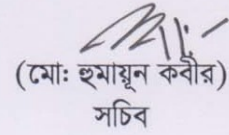 (মো: হুমায়ূন কবীর)
সচিব